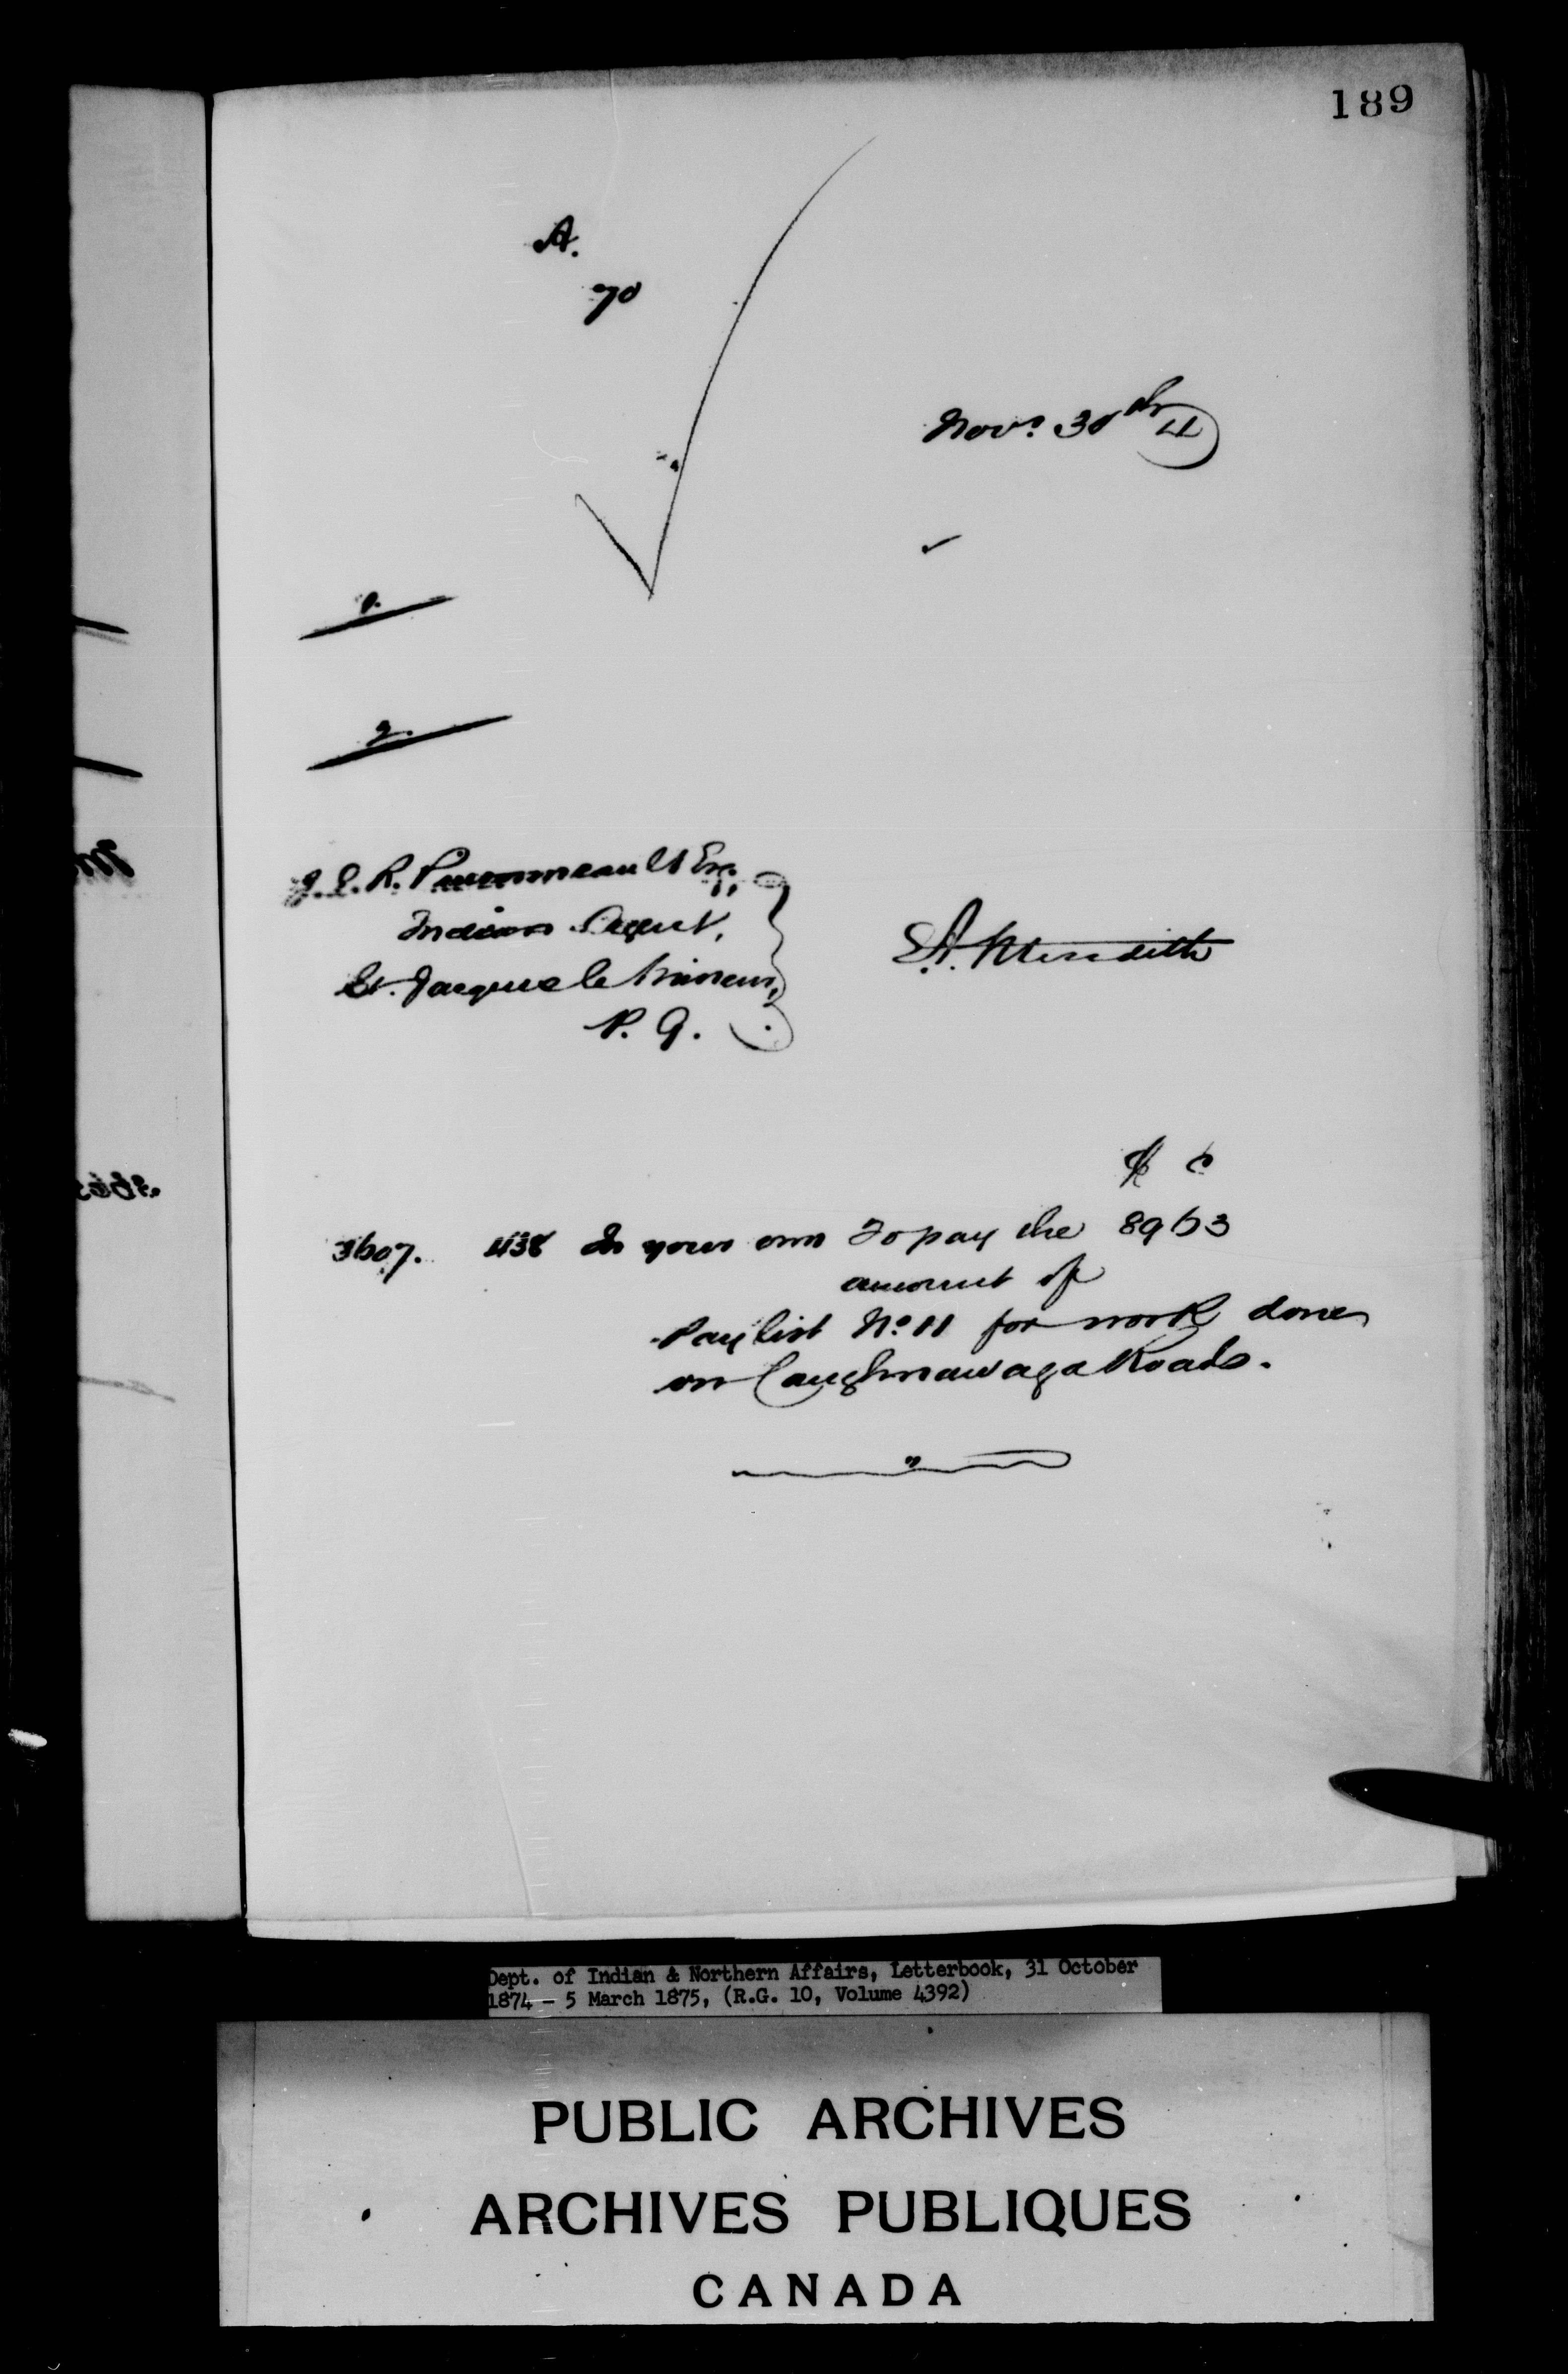 189
A.
70
Nov. 30th 4
1.
2.
J. E. R. Pinsonneault Esq,
Indian Agent,
St. Jacques le Mineur,
P. Q.
E.A. Meredith
$ c
3607. 438 In your own To pay the 8963
amount of
Pay list No. 11 for work done
on Caughnawaga Roads.
Dept. of Indian & Northern Affairs, Letterbook, 31 October
1874 - 5 March 1875, (R.G. 10, Volume 4392)
PUBLIC ARCHIVES
ARCHIVES PUBLIQUES
CANADA